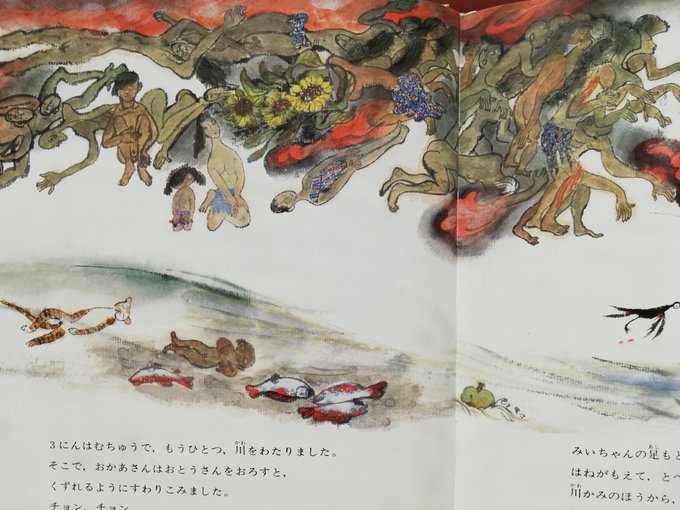 3にんはむちゅうで、もうひとつ、川をわたりました。
そこで、おかあさんはおとうさんをおろすと、
くずれるようにすわりこみました。
チョン、チョン
みいちゃんの足もと
はねがもえて、とべ
川かみのほうから、